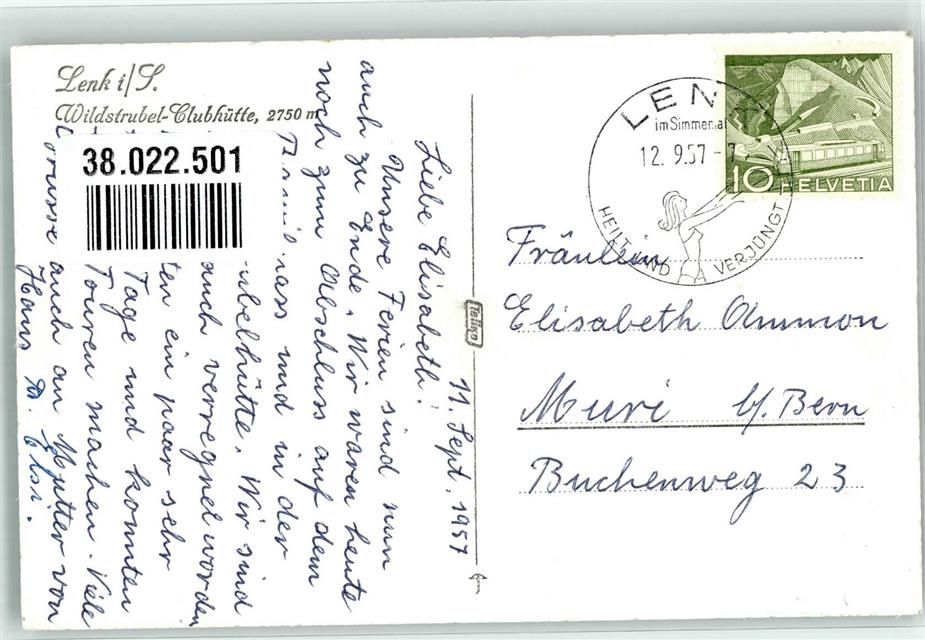 Lenk i/S.
Wildstrubel-Clubhütte, 2750 m
38.022.501
11. Sept. 1957
Liebe Elisabeth!
Unsere Ferien sind nun
auch zu Ende. Wir waren heute
noch zum Abschluss auf dem
und in der
Wir sind
auch verregnet worden
ein paar sehr
Tage und konnten
Touren machen. Viele
auch an Mutter von
Hans
Teilko
LENK
im Simmental
12. 9.57 -
HEILT UND VERJÜNGT
10 HELVETIA
Fräulein
Elisabeth Ammon
Muri b/Bern
Buchenweg 23